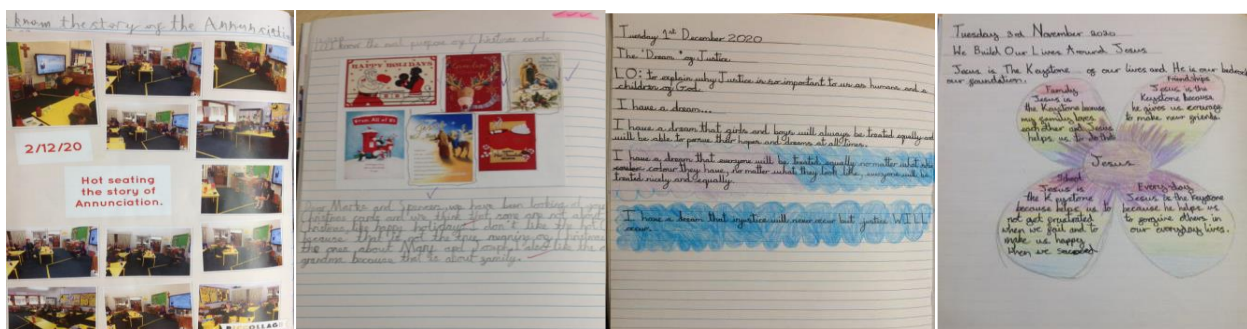 know the story of the Annunciation
2/12/20
Hot seating
the story of
Annunciation.
PICCOLLAGE
the real purpose of Christmas cards
HAPPY HOLIDAYS
Dear Marks and Spencer, we have been looking at your
Christmas cards and we think that some are not about
Christmas, like happy holidays. I don't like the
because that is not the true meaning of Christmas
the ones about Mary and Joseph. I also like the
grandma because that is about family.
Tuesday 1st December 2020
The 'Dream' of Justice
LO: to explain why Justice is so important to us as humans and a
children of God.
I have a dream...
I have a dream that girls and boys will always be treated equally and
will be able to persue their hopes and dreams at all times.
I have a dream that everyone will be treated equally no matter what
colour they have, no matter what they look like, everyone will be
treated nicely and equally.
I have a dream that injustice will never occur but justice WILL
occur.
Tuesday 3rd November 2020
We Build Our Lives Around Jesus
Jesus is The Keystone of our lives and He is our bedrock
our foundation.
Family
Jesus is
the Keystone because
my family loves
each other and Jesus
helps us to do this
Friendships
Jesus is the
Keystone because
he gives us courage
to make new friends.
Jesus
School
Jesus is
the Keystone
because he helps us to
not get frustrated
when we fail and to
make us happy
when we succeed.
Everyday
Jesus is the Keystone
because he helps us
to forgive others in
our everyday lives.